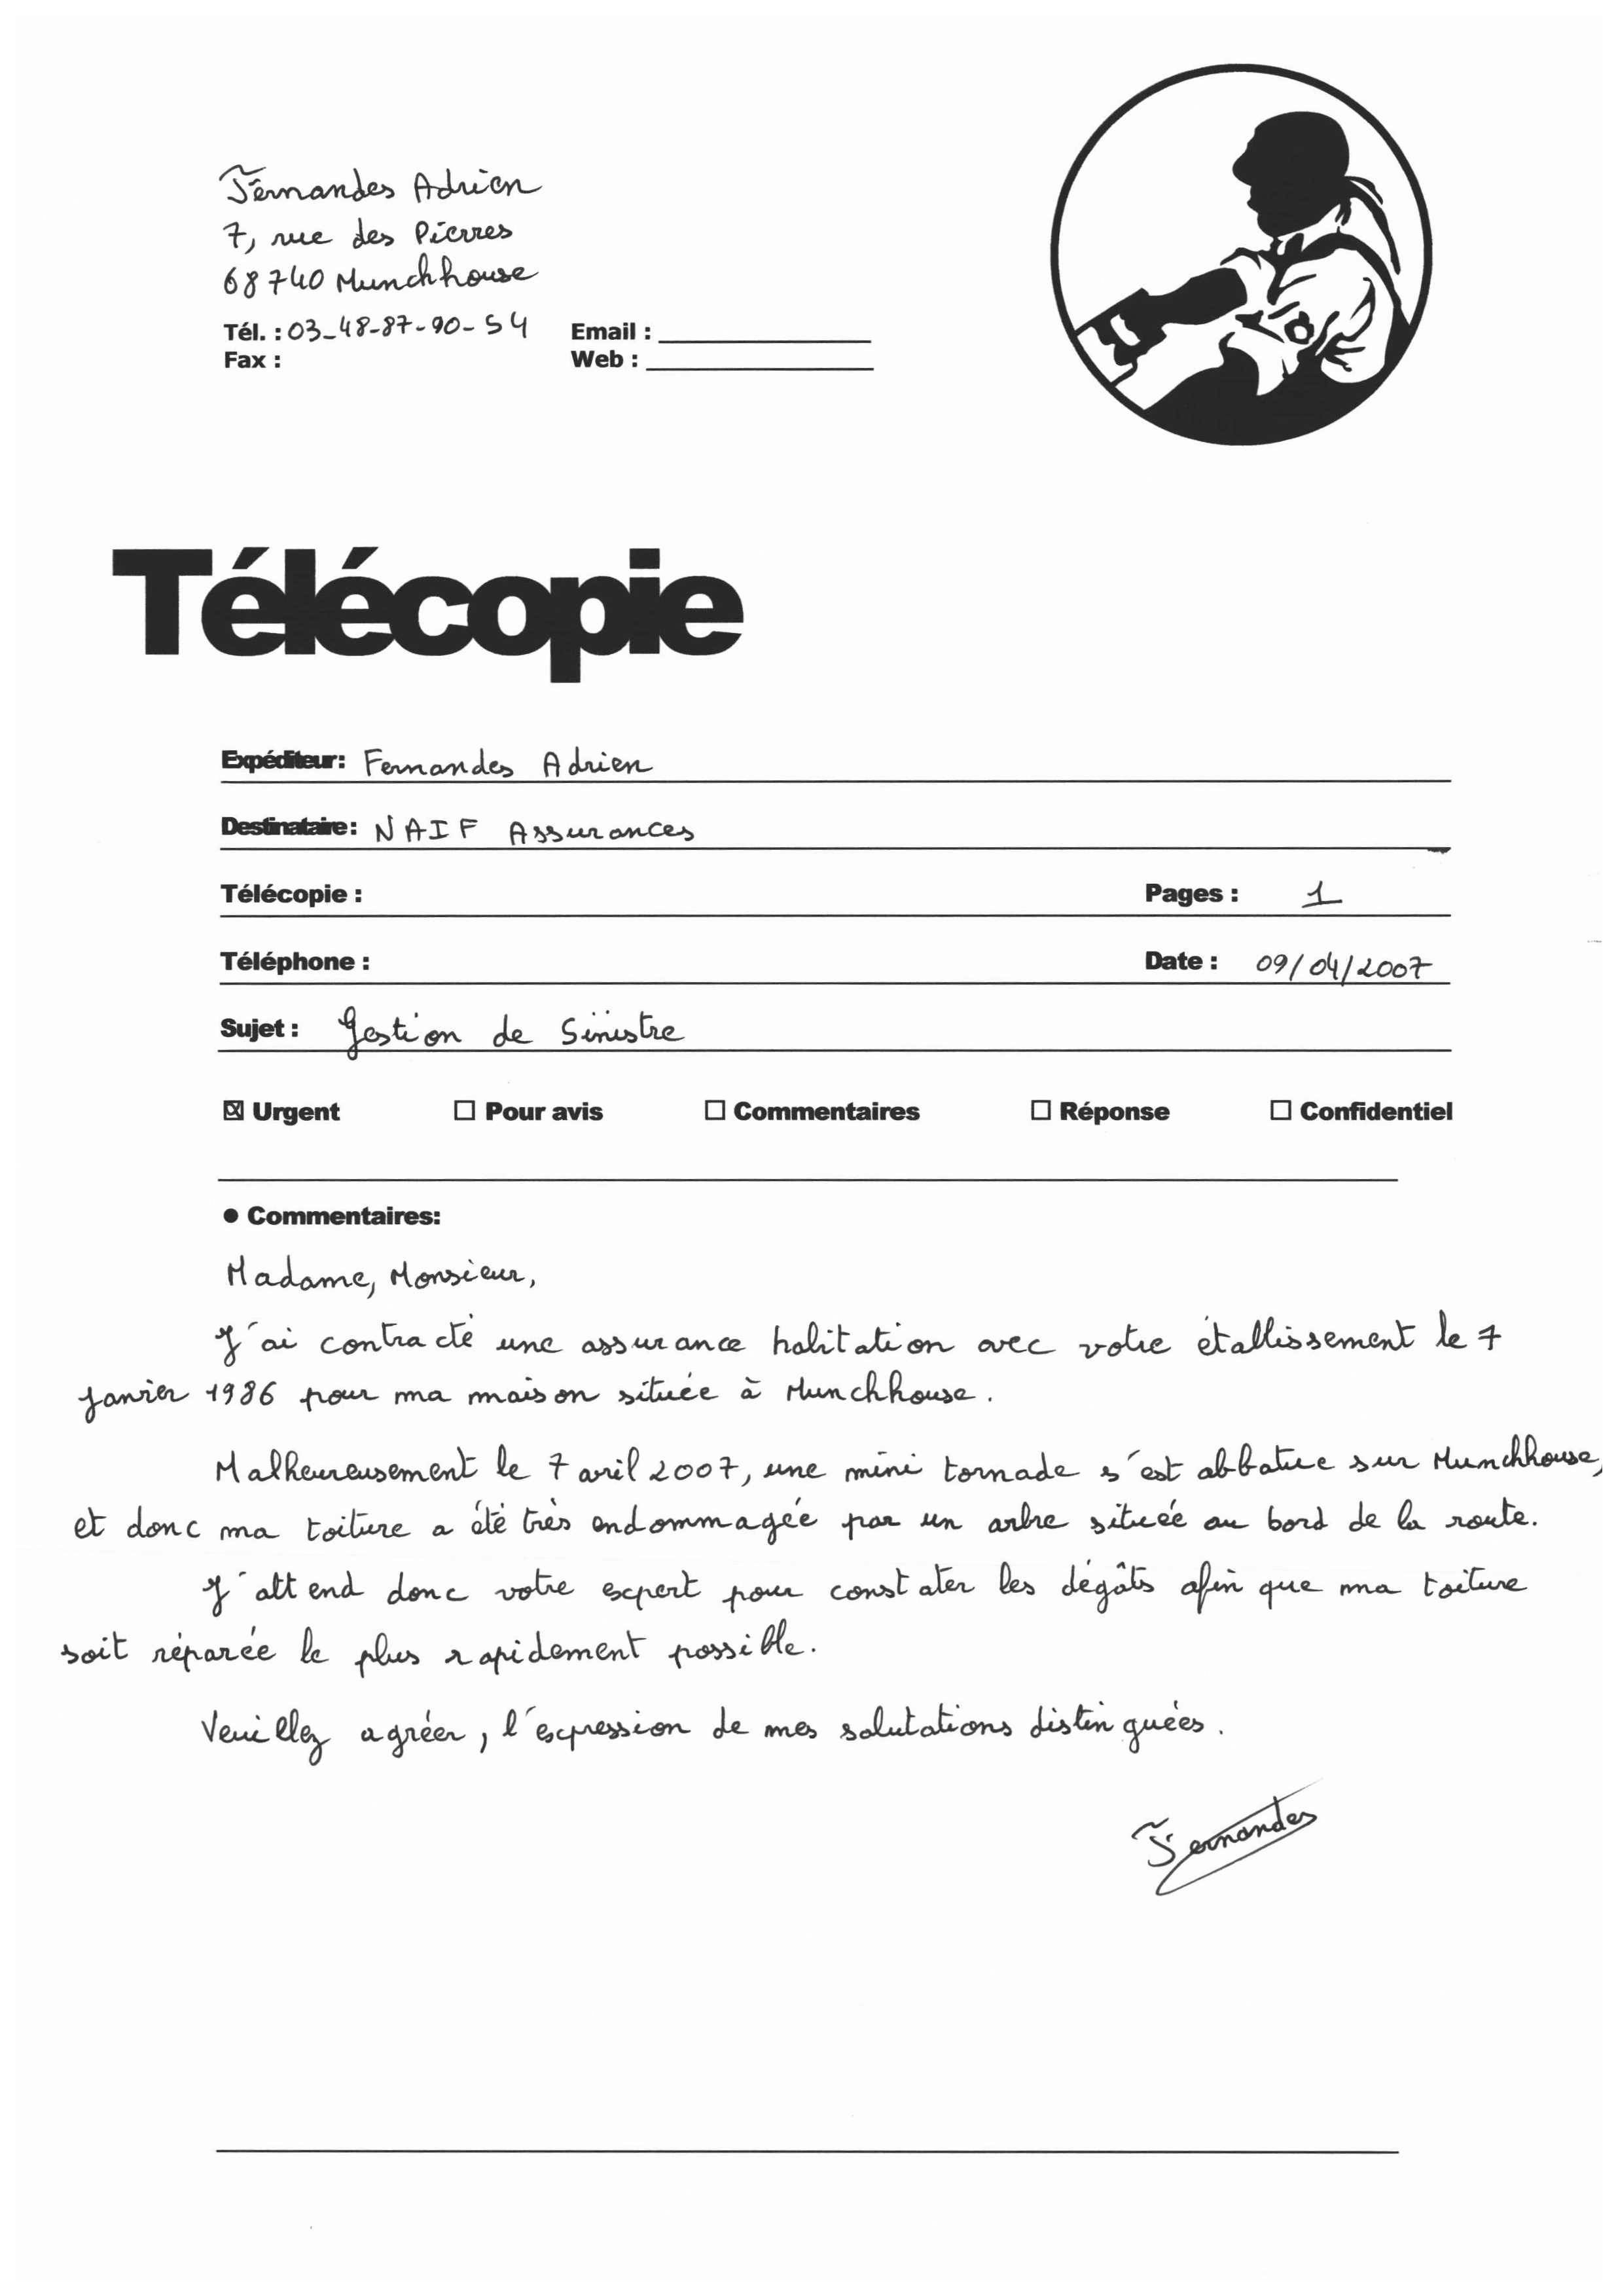 Fernandes Adrien
7, rue des Pierres
68740 Munchhouse
Tél. : 03-48-87-90-54 Email :
Fax : Web :
Télécopie
Expéditeur: Fernandes Adrien
Destinataire: NAIF Assurances
Télécopie : Pages : 1
Téléphone : Date : 09/04/2007
Sujet : Gestion de Sinistre
☒ Urgent ☐ Pour avis ☐ Commentaires ☐ Réponse ☐ Confidentiel
● Commentaires:
Madame, Monsieur,
J'ai contracté une assurance habitation avec votre établissement le 7
janvier 1986 pour ma maison située à Munchhouse.
Malheureusement le 7 avril 2007, une mini tornade s'est abbatue sur Munchhouse,
et donc ma toiture a été très endommagée par un arbre située au bord de la route.
J'attend donc votre expert pour constater les dégâts afin que ma toiture
soit réparée le plus rapidement possible.
Veuillez agréer, l'expression de mes salutations distinguées.
Fernandes